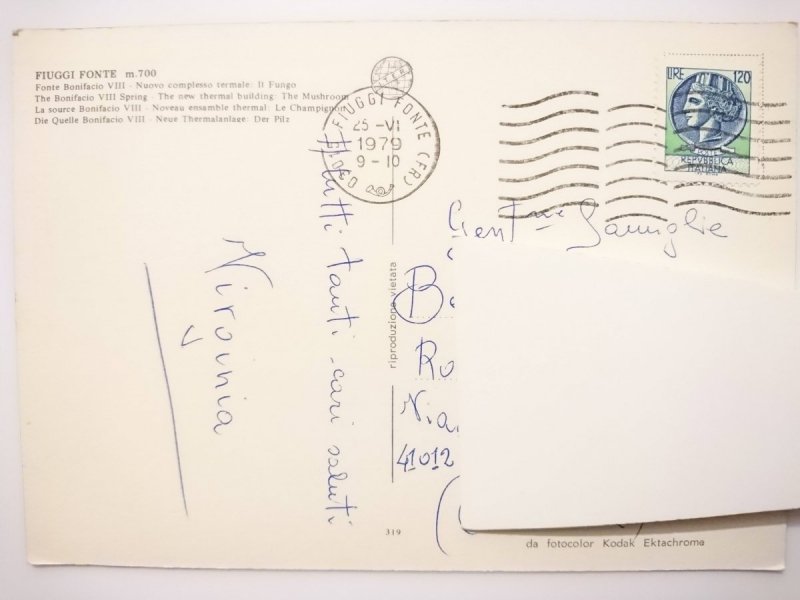 FIUGGI FONTE m.700
Fonte Bonifacio VIII - Nuovo complesso termale: Il Fungo
The Bonifacio VIII Spring - The new thermal building: The Mushroom
La source Bonifacio VIII - Noveau ensemble thermal: Le Champignon
Die Quelle Bonifacio VIII - Neue Thermalanlage: Der Pilz
03010 FIUGGI FONTE (FR)
25-VI
1979
9-10
LIRE 120
POSTE
REPVBBLICA
ITALIANA
A tutti tanti cari saluti
Virginia
Gent.me Famiglie
Ro
Via
41012
riproduzione vietata
319
da fotocolor Kodak Ektachrome